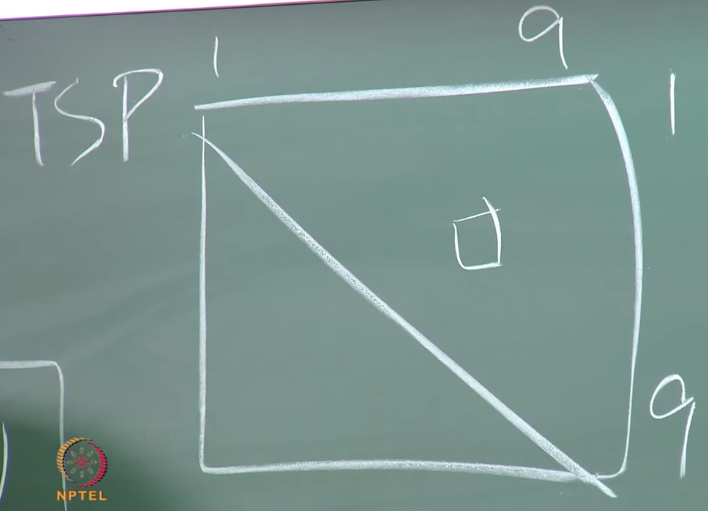 TSP
1 9
1
9
NPTEL